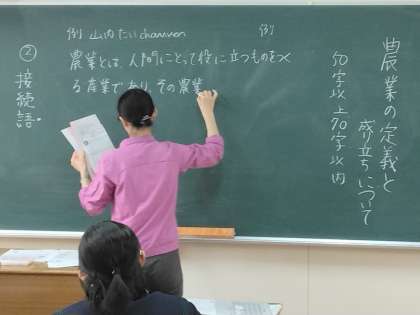 農業の定義と
成り立ちについて
50字以上70字以内
例
例 山内たい
農業とは、人間にとって役に立つものをつく
る産業であり、その農業
②接続語